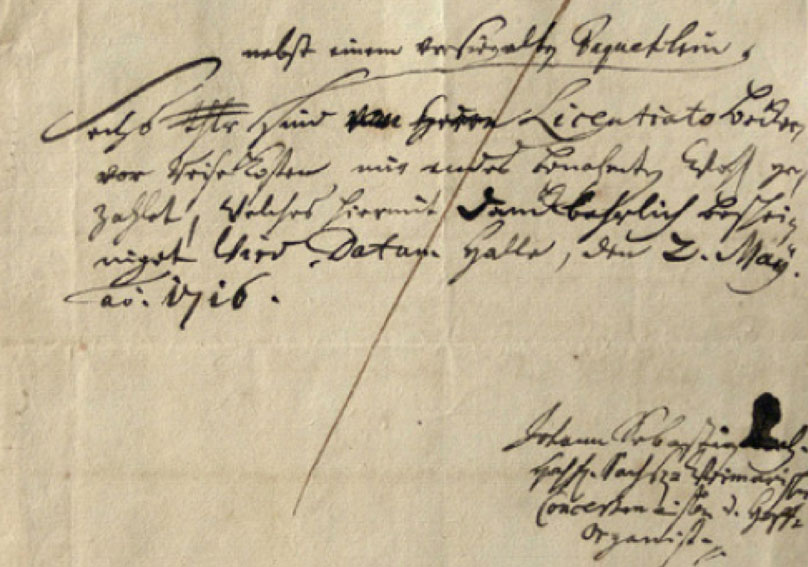 nebst einem versiegelten Paquetlein,
Sechs Thlr sind von Herrn Licentiato Becker,
vor Reisekosten mir endes benahmten Wohl ge,
zahlet, Welches hiermit Danckbahrlich beschei,
niget Wird. Datum. Halle, den 2. Maÿ.
ao. 1716.
Johann Sebastian Bach.
Sachs= Weimarischer
Concertmeister u. Hoff=
Organist.